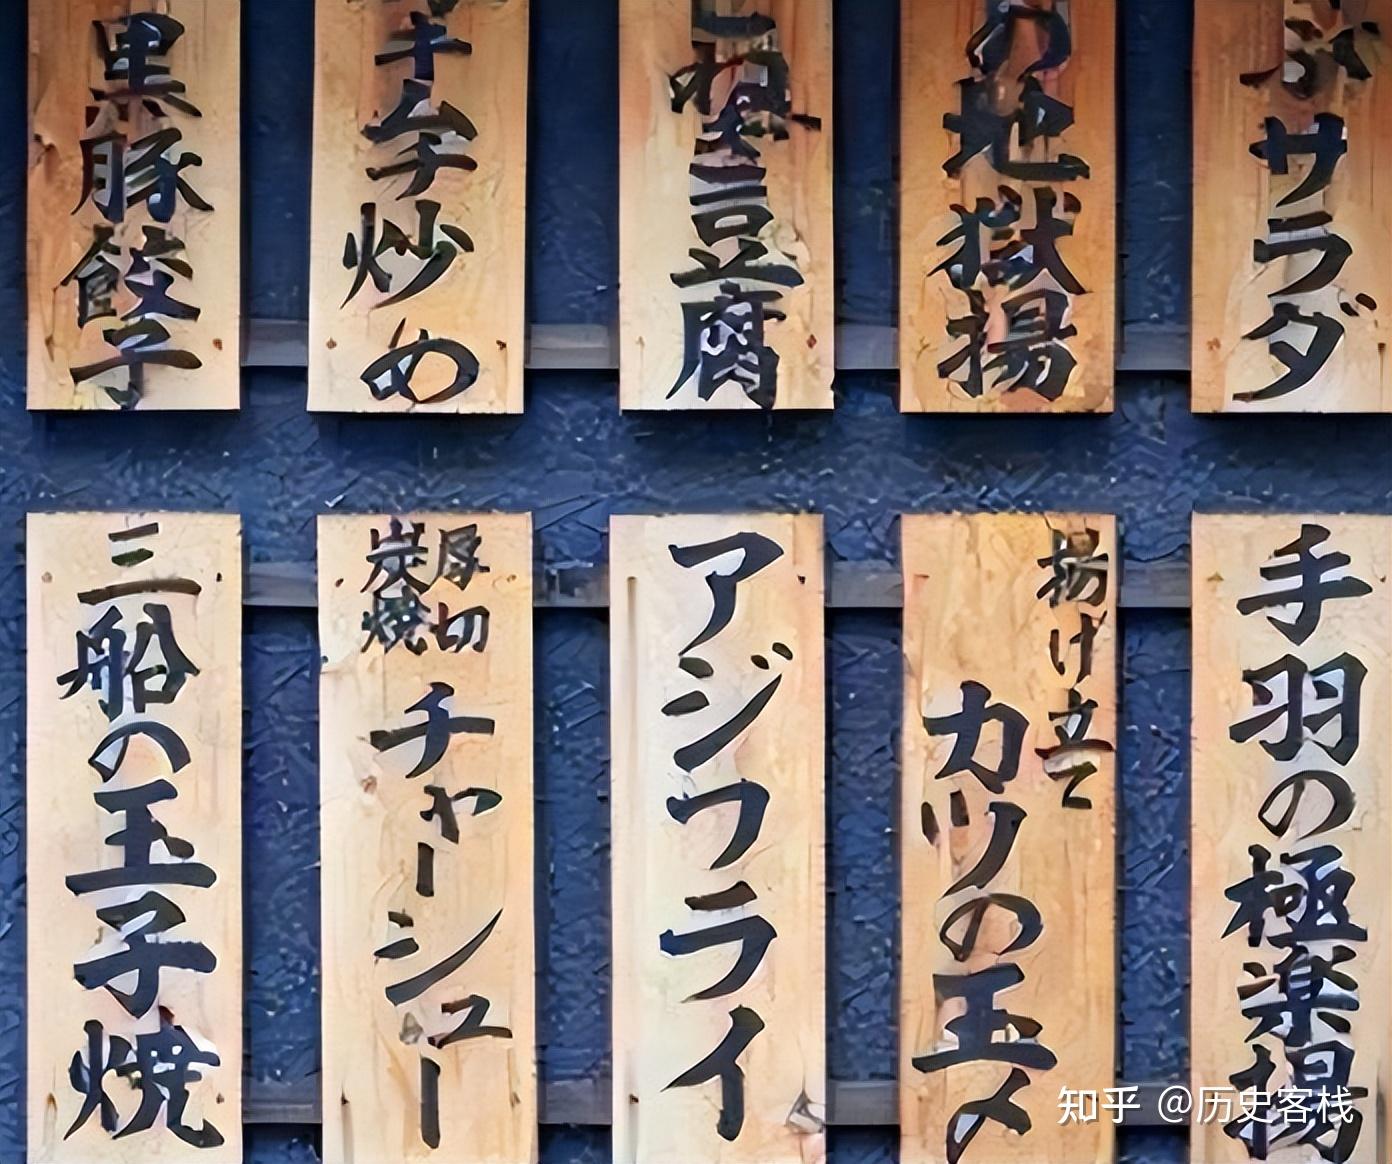 サラダ
の地獄揚
豆腐
キムチ炒め
黒豚餃子
手羽の極楽揚
揚げ立て
カツの玉〆
アジフライ
厚切
炭焼
チャーシュー
三船の玉子焼
知乎 @历史客栈